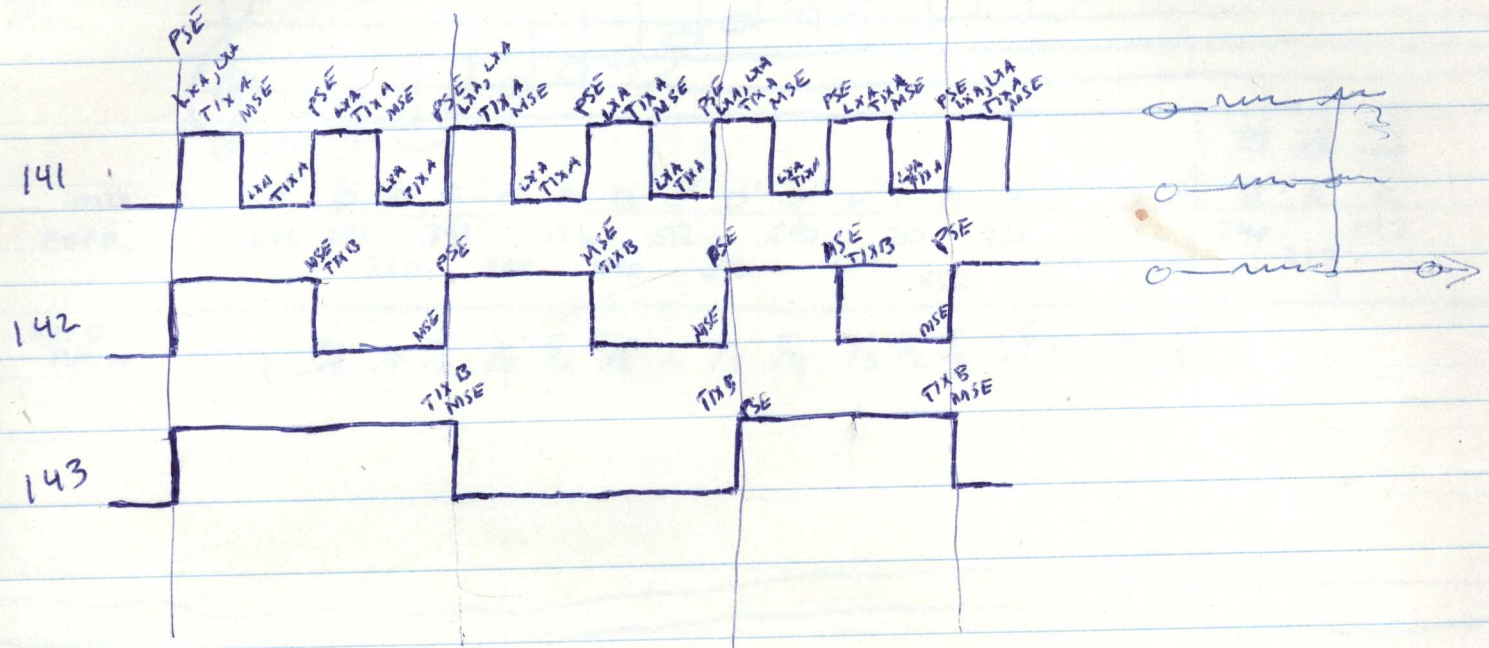 PSE
LXA, LXA
TIXA
MSE
PSE
LXA
TIXA
MSE
PSE
LXA, LXA
TIXA
MSE
PSE
LXA
TIXA
MSE
PSE
LXA, LXA
TIXA
MSE
PSE
LXA
TIXA
MSE
PSE
LXA, LXA
TIXA
MSE
141
LXA
TIXA
LXA
TIXA
LXA
TIXA
LXA
TIXA
LXA
TIXA
LXA
TIXA
MSE
TIXB
PSE
MSE
TIXB
PSE
MSE
TIXB
PSE
142
MSE
MSE
MSE
TIXB
MSE
TIXB
PSE
TIXB
MSE
143